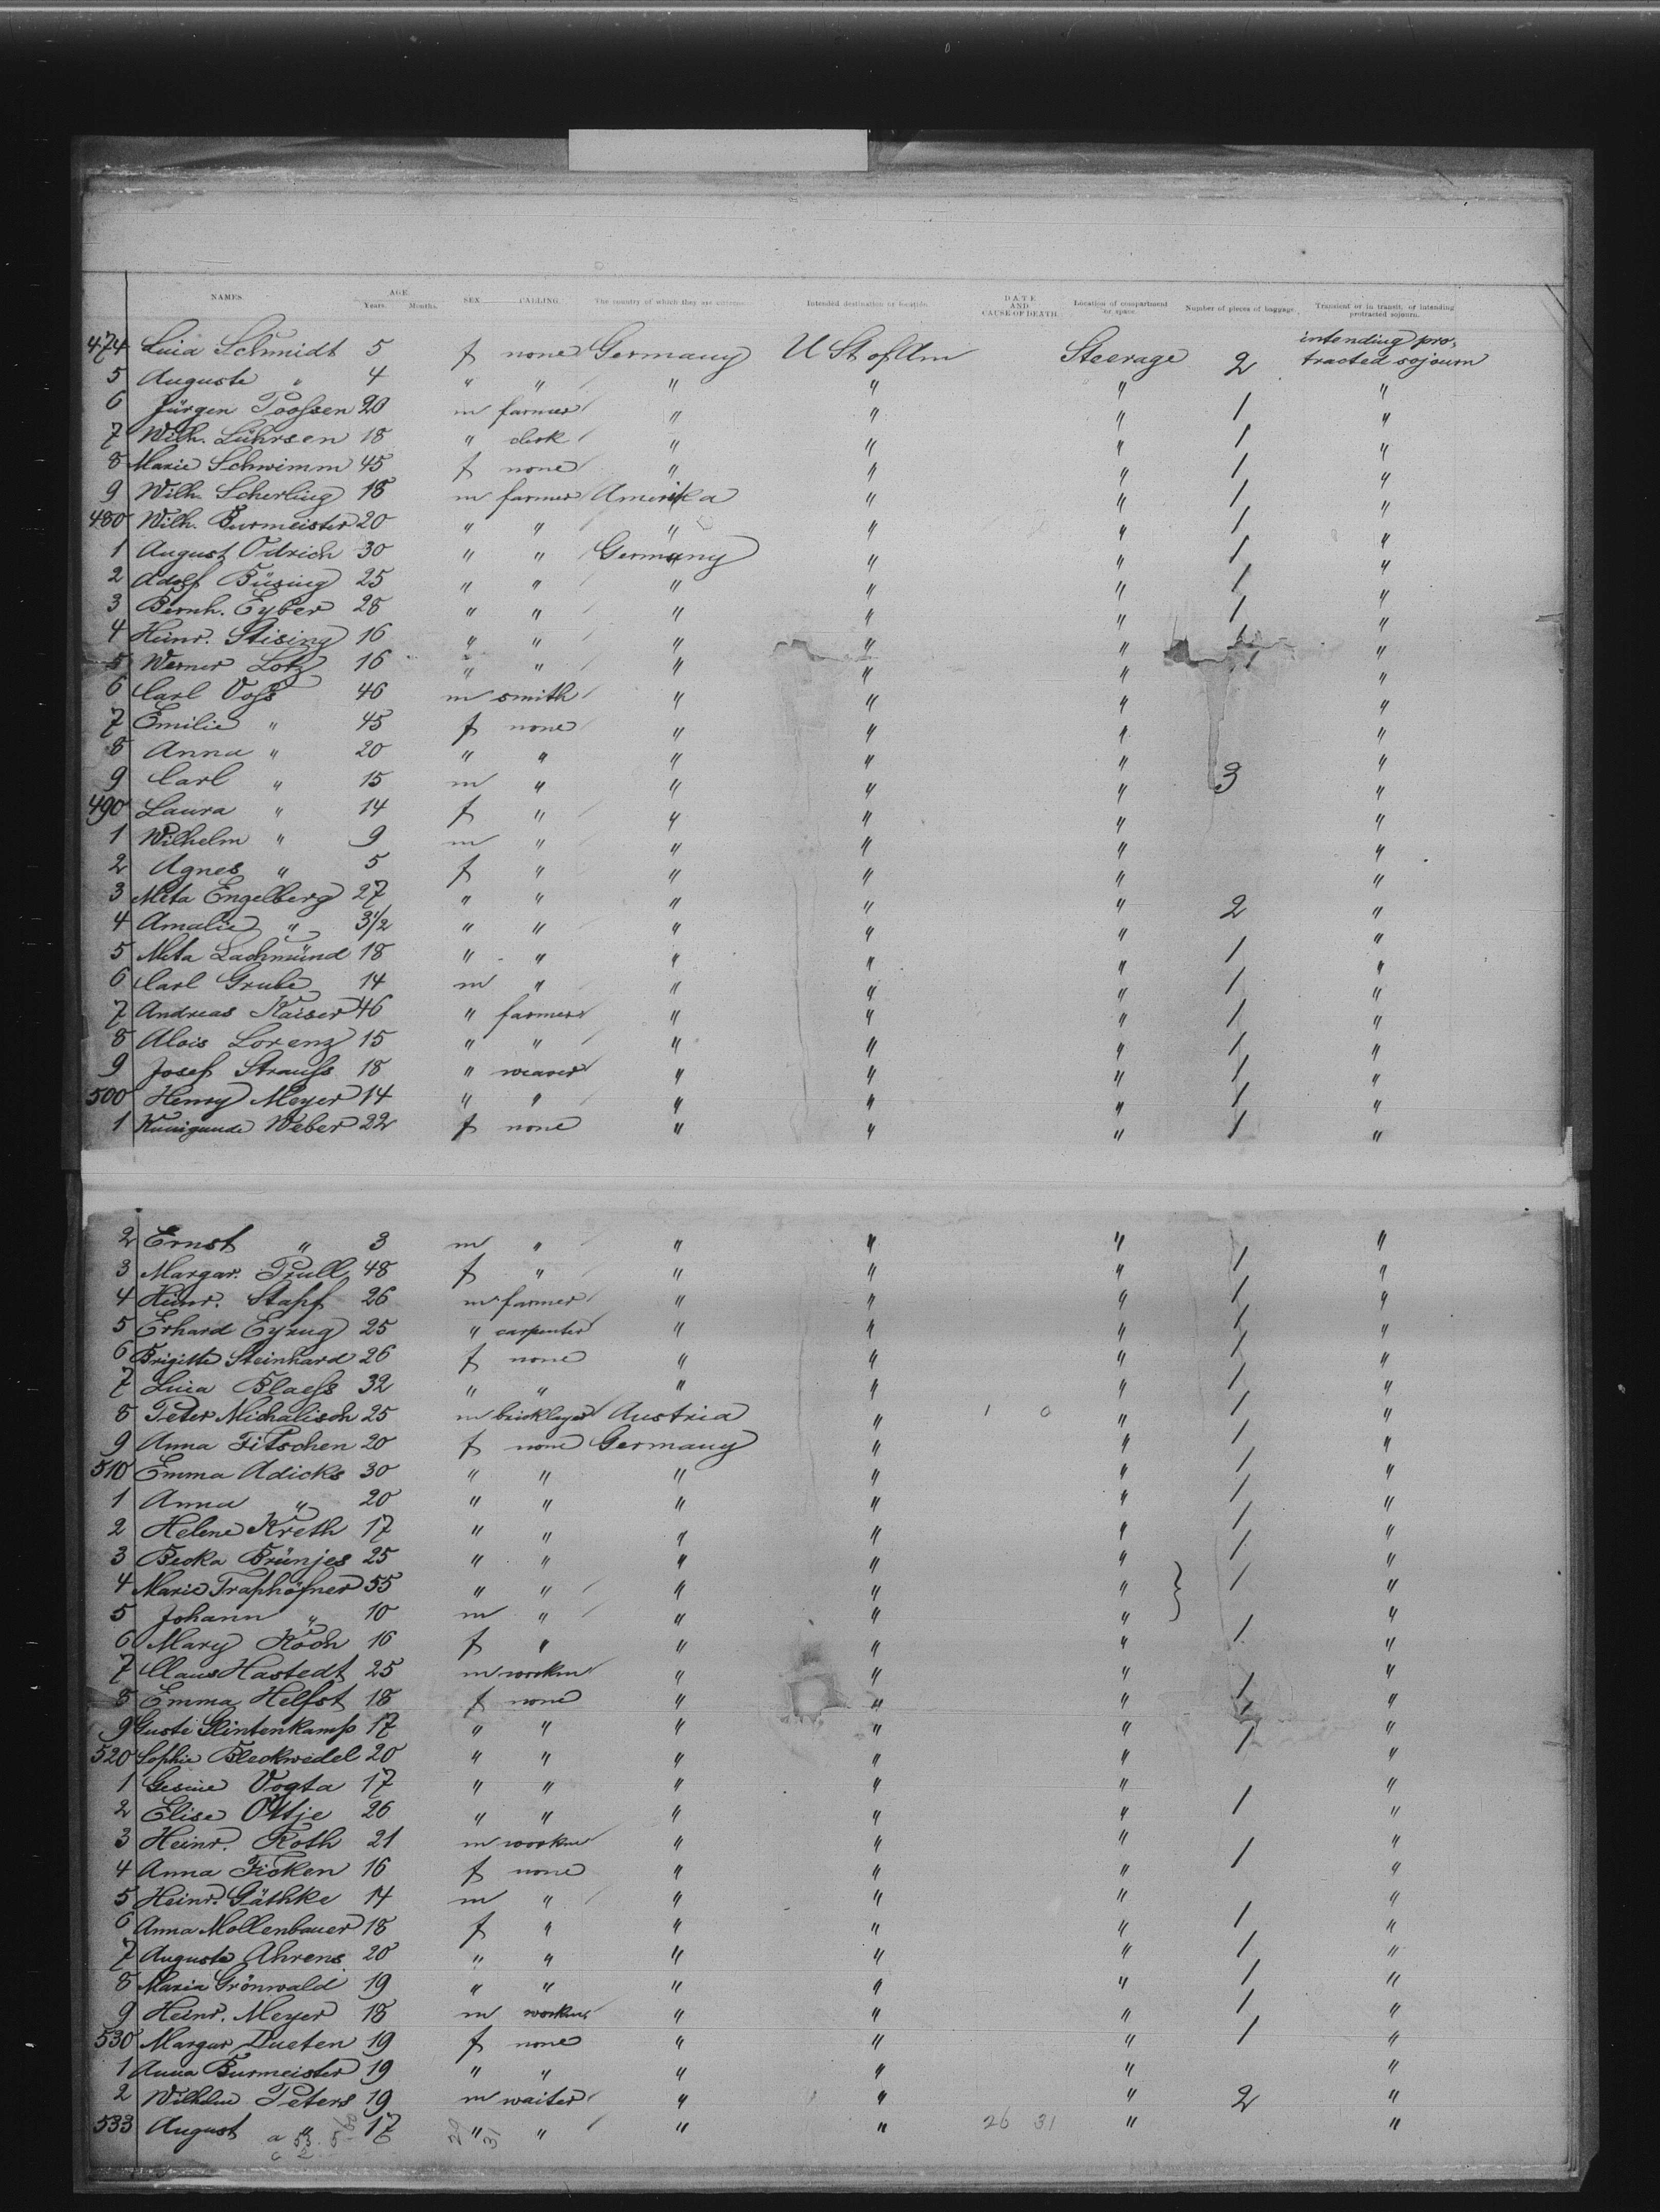 NAMES. AGE. Years. Months. SEX. CALLING. The country of which they are citizens. Intended destination or location. DATE AND CAUSE OF DEATH. Location of compartment or space. Number of pieces of baggage. Transient or in transit, or intending protracted sojourn.
474 Lina Schmidt 5 f none Germany U St of Am Steerage 2 intending protracted sojourn
5 Auguste " 4 " " " " " "
6 Jürgen Poossen 20 m farmer " " " 1 "
7 Wilh. Lührsen 18 " clerk " " " 1 "
8 Marie Schwimm 45 f none " " " 1 "
9 Wilh. Scherling 18 m farmer Amerika " " 1 "
480 Wilh. Burmeister 20 " " " " " 1 "
1 August Odrich 30 " " Germany " " 1 "
2 Adolf Büsing 25 " " " " " 1 "
3 Bernh. Eyber 28 " " " " " 1 "
4 Heinr. Stising 16 " " " " " "
5 Werner Lotz 16 " " " " " 1 "
6 Carl Voss 46 m smith " " " "
7 Emilie " 45 f none " " " "
8 Anna " 20 " " " " " "
9 Carl " 15 m " " " " 3 "
490 Laura " 14 f " " " " "
1 Wilhelm " 9 m " " " " "
2 Agnes " 5 f " " " " "
3 Meta Engelberg 27 " " " " " 2 "
4 Amalie " 3 1/2 " " " " " "
5 Meta Lachmünd 18 " " " " " 1 "
6 Carl Grube 14 m " " " " 1 "
7 Andreas Kaiser 46 " farmer " " " 1 "
8 Alois Lorenz 15 " " " " " 1 "
9 Josef Strauss 18 " weaver " " " 1 "
500 Henry Meyer 14 " " " " " 1 "
1 Kunigunde Weber 22 f none " " " 1 "
2 Ernst " 3 m " " " " "
3 Margar. Prull 48 f " " " " 1 "
4 Heinr. Stapf 26 m farmer " " " 1 "
5 Erhard Eyrug 25 " carpenter " " " 1 "
6 Brigitte Steinhard 26 f none " " " 1 "
7 Lina Blaess 32 " " " " " 1 "
8 Peter Michalisch 25 m bricklayer Austria " 1 0 " 1 "
9 Anna Fitschen 20 f none Germany " " 1 "
510 Emma Adicks 30 " " " " " 1 "
1 Anna " 20 " " " " " 1 "
2 Helene Kreth 17 " " " " " 1 "
3 Becka Brünjes 25 " " " " " 1 "
4 Marie Traphöfner 55 " " " " " } 1 "
5 Johann " 10 m " " " " "
6 Mary Koch 16 f " " " " 1 "
7 Claus Hastedt 25 m workm " " " 1 "
8 Emma Helfst 18 f none " " " 1 "
9 Guste Glintenkamp 17 " " " " " 1 "
520 Sophie Bleckwedel 20 " " " " " "
1 Gesine Vogta 17 " " " " " "
2 Elise Ottje 26 " " " " " 1 "
3 Heinr. Roth 21 m workm " " " "
4 Anna Ficken 16 f none " " " 1 "
5 Heinr. Gäthke 14 m " " " " "
6 Anna Mollenbauer 18 f " " " " 1 "
7 Auguste Ahrens 20 " " " " " 1 "
8 Maria Grönwald 19 " " " " " 1 "
9 Heinr. Meyer 18 m workm " " " 1 "
530 Margar Dueten 19 f none " " " 1 "
1 Anna Burmeister 19 " " " " " "
2 Wilhelm Peters 19 m waiter " " " 2 "
533 August " 17 " " " " 26 31 " "
29 31